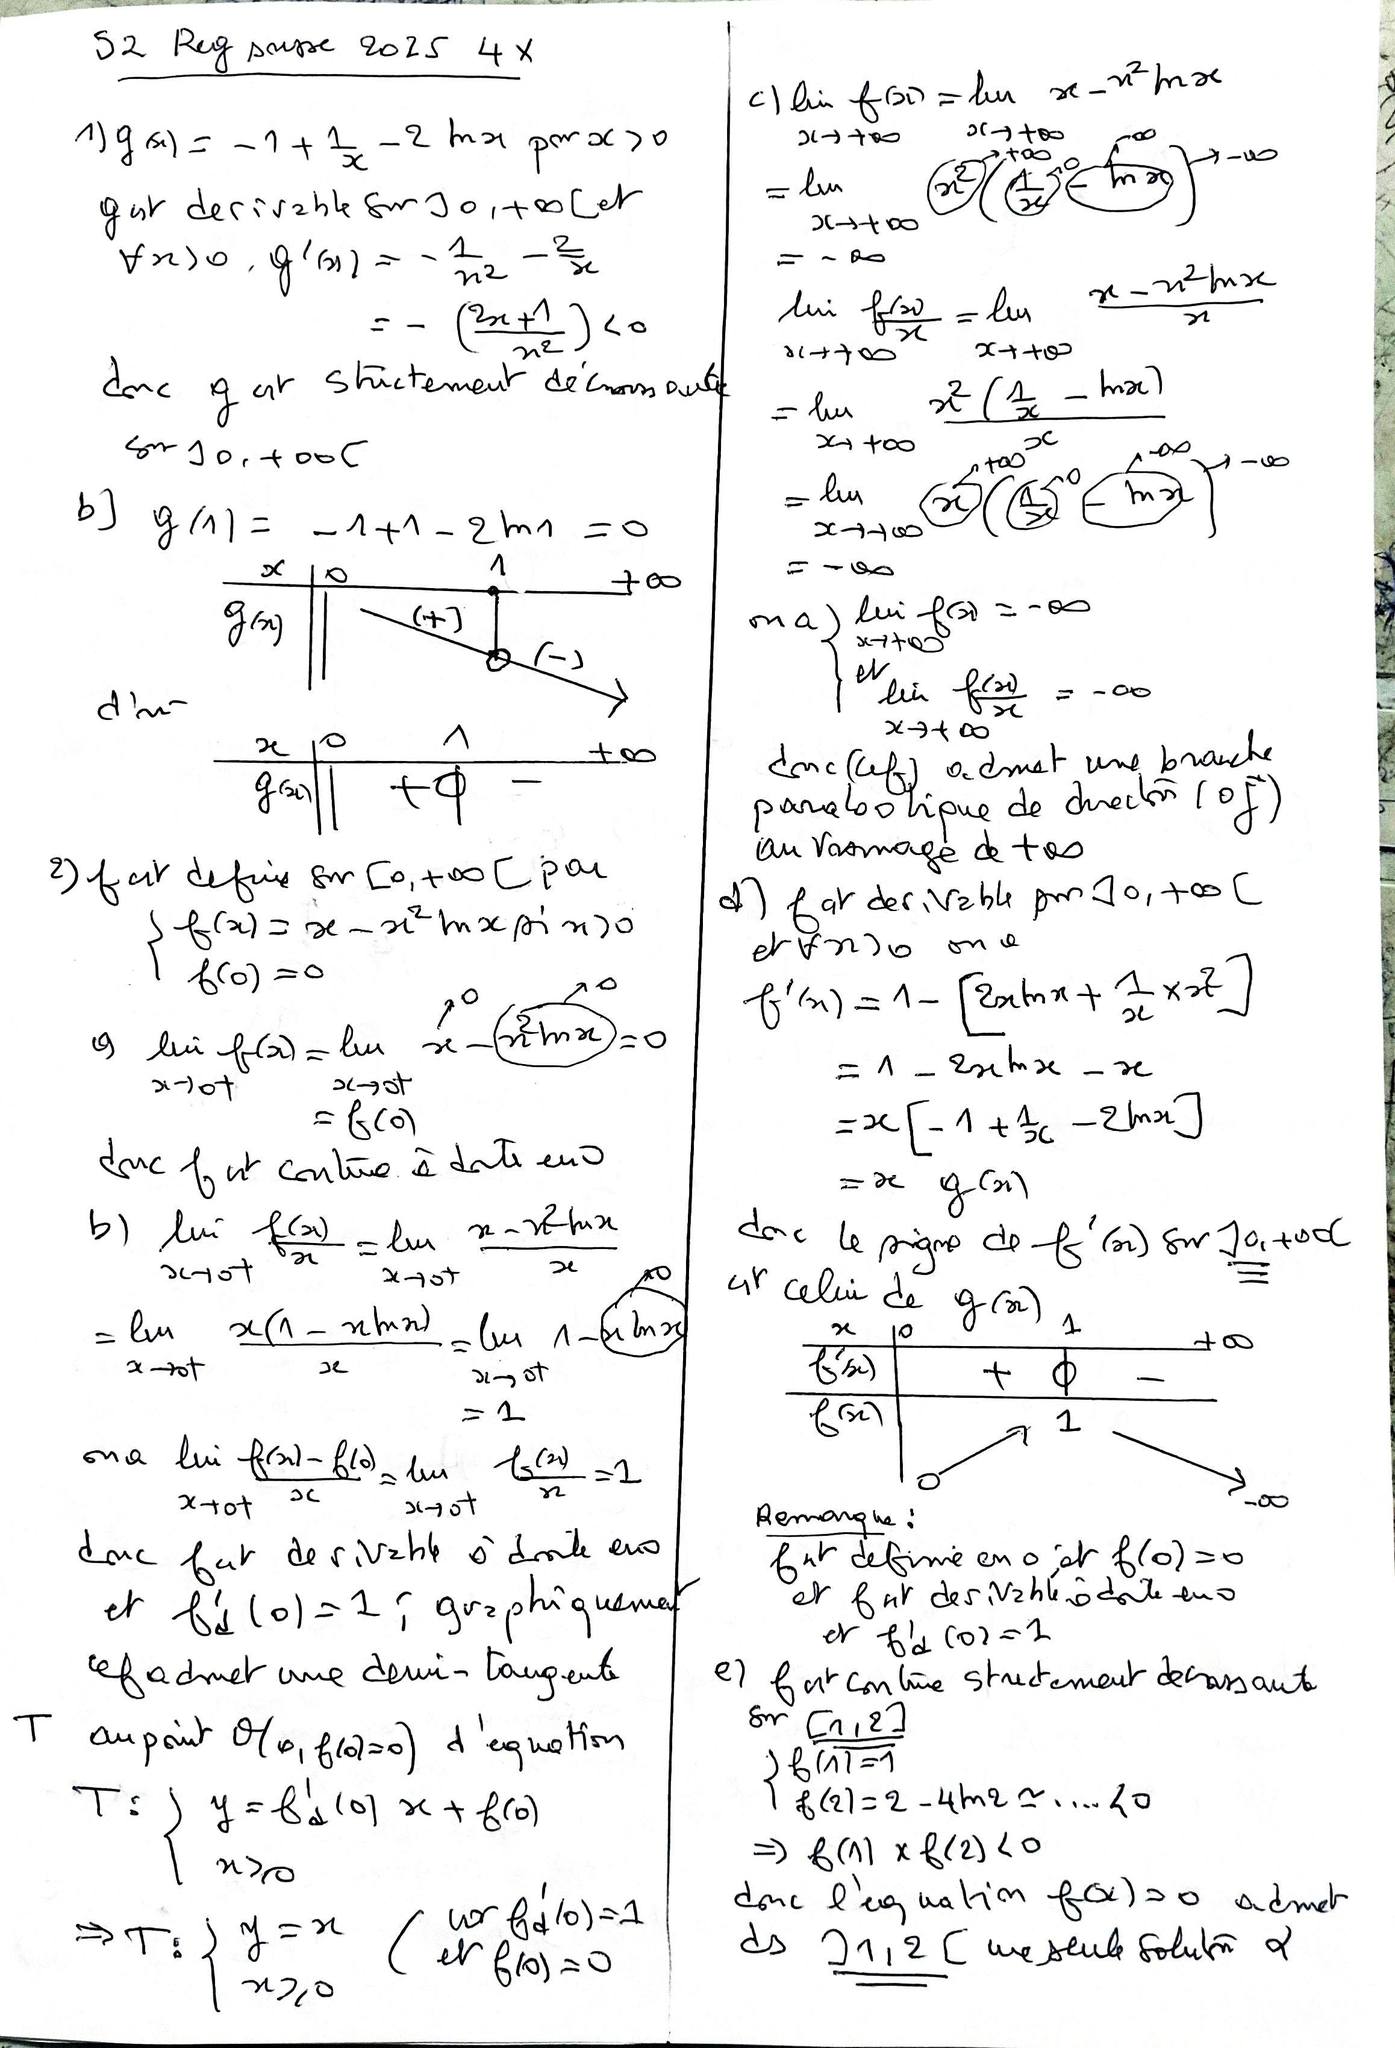 S2 Reg sousse 2025 4x
1) g(x) = -1 + 1/x - 2 lnx pour x>0
g est derivable sur ]0,+∞[ et
∀x>0, g'(x) = - 1/x² - 2/x
= - (2x+1/x²) <0
donc g est strictement décroissante
sur ]0,+∞[
b] g(1) = -1+1-2ln1 = 0
x 0 1 +∞
g(x) (+) 0 (-)
d'où
x 0 1 +∞
g(x) + 0 -
2) f est definie sur [0,+∞[ par
{ f(x) = x - x² lnx si x>0
f(0) = 0
a) lim f(x) = lim x - x² lnx = 0
x→0+ x→0+ →0 →0
= f(0)
donc f est contine à doite en 0
b) lim f(x)/x = lim x - x² lnx / x
x→0+ x→0+
= lim x(1 - x lnx) / x = lim 1 - x lnx →0
x→0+ x→0+
= 1
on a lim f(x)-f(0) / x = lim f(x)/x = 1
x→0+ x→0+
donc f est derivable à droite en 0
et f'd(0) = 1 ; graphiquement
Cf admet une demi-tangente
T au point O(0, f(0)=0) d'equation
T: { y = f'd(0) x + f(0)
x≥0
⇒ T: { y = x ( car f'd(0)=1
x≥0 et f(0)=0
c) lim f(x) = lim x - x² lnx
x→+∞ x→+∞
= lim x² (1/x - lnx) → -∞
x→+∞ →+∞ →0 →-∞
= -∞
lim f(x)/x = lim x - x² lnx / x
x→+∞ x→+∞
= lim x² (1/x - lnx) / x
x→+∞
= lim x (1/x - lnx) → -∞
x→+∞ →+∞ →0 →-∞
= -∞
on a { lim f(x) = -∞
x→+∞
et lim f(x)/x = -∞
x→+∞
donc (Cf) admet une branche
parabolique de direction (O j⃗)
au voisinage de +∞
d) f est derivable sur ]0,+∞[
et ∀x>0 on a
f'(x) = 1 - [2x lnx + 1/x × x²]
= 1 - 2x lnx - x
= x [-1 + 1/x - 2 lnx]
= x g(x)
donc le signe de f'(x) sur ]0,+∞[
est celui de g(x)
x 0 1 +∞
f'(x) + 0 -
f(x) 0 1 -∞
Remarque :
f est definie en 0 et f(0)=0
et f est derivable à doite en 0
et f'd(0)=1
e) f est contine strictement decroissante
sur [1,2]
{ f(1)=1
f(2)=2-4ln2 ≃ .... <0
⇒ f(1) × f(2) <0
donc l'equation f(x)=0 admet
ds ]1,2[ une seule solution α